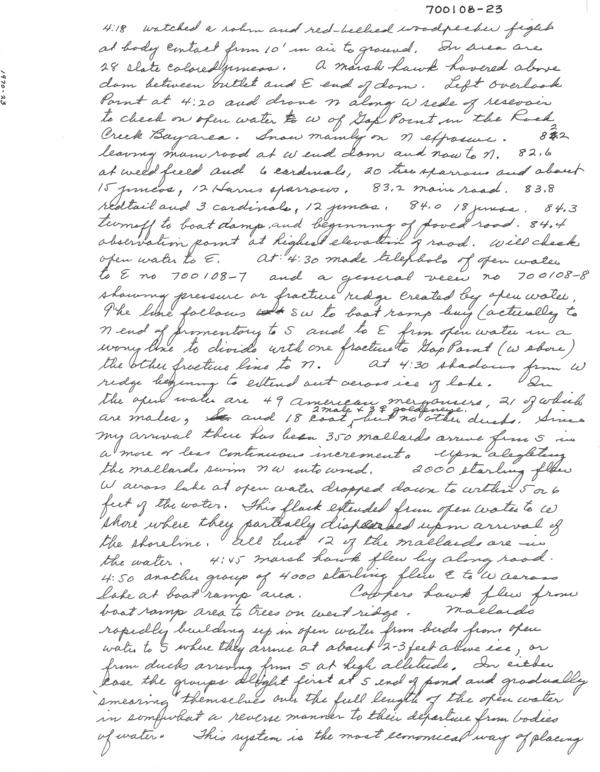 700108-23
1970-23
4:18 watched a robin and red-bellied woodpecker fight
at body contact from 10' in air to ground. In area are
28 slate colored juncos. A marsh hawk hovered above
dam between outlet and E end of dam. Left Overlook
Point at 4:20 and drove N along W side of resevoir
to check on open water to W of Gap Point in the Rock
Creek Bay area. Snow mainly on N exposure. 82.2
leaving main road at W end dam and now to N. 82.6
at weed field and 6 cardinals, 20 tree sparrows and about
15 juncos, 12 Harris sparrows. 83.2 main road. 83.8
redtail and 3 cardinals, 12 juncos. 84.0 18 juncos. 84.3
turnoff to boat damp, and beginning of paved road. 84.4
observation point at highest elevation of road. Will check
open water to E. At 4:30 made telephoto of open water
to E no 700108-7 and a general view no 700108-8
showing pressure or fracture ridge created by open water.
The line follows SW to boat ramp buoy (actually to
N end of promentory to S and to E from open water in a
wavy line to divide with one fracture to Gap Point (W shore)
the other fracture line to N. At 4:30 shadows from W
ridge beginning to extend out across ice of lake. In
the open water are 49 American mergansers, 21 of which
are males, and 18 coot, 2 male & 3 ♀ goldeneye. but no other ducks. Since
my arrival there has been 350 mallards arrive from S in
a more or less continuous increment. Upon alighting
the mallards swim NW into wind. 2000 starling flew
W across lake at open water dropped down to within 5 or 6
feet of the water. This flock extended from open water to W
shore where they partially dispersed upon arrival of
the shoreline. All but 12 of the mallards are in
the water. 4:45 marsh hawk flew by along road.
4:50 another group of 4000 starling flew E to W across
lake at boat ramp area. Coopers hawk flew from
boat ramp area to trees on west ridge. Mallards
rapidly building up in open water from birds from open
water to S where they arrive at about 2-3 feet above ice, or
from ducks arriving from S at high altitude. In either
case the groups alight first at S end of pond and gradually
smearing themselves over the full length of the open water
in somewhat a reverse manner to their departure from bodies
of water. This system is the most economical way of placing